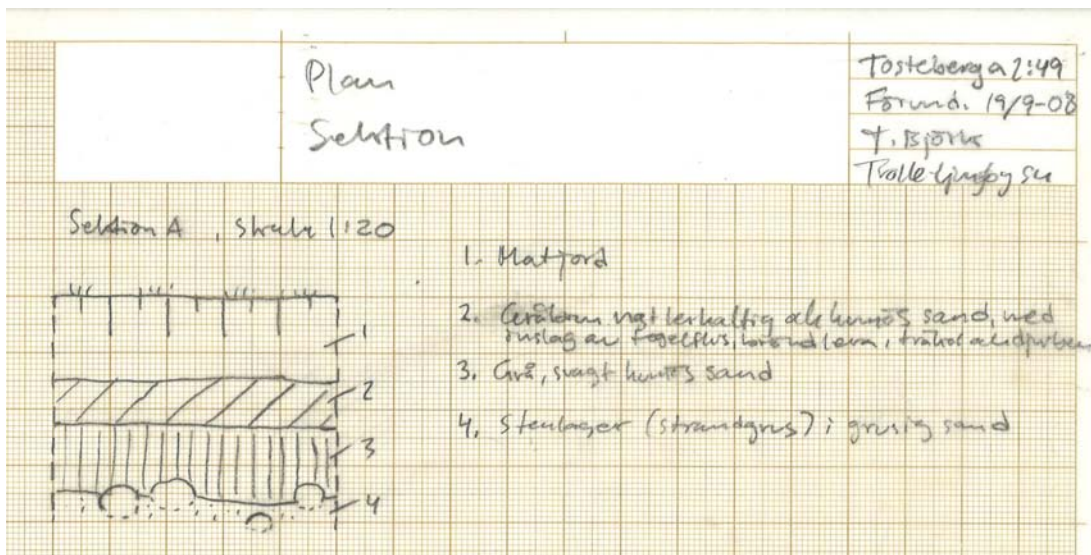 Plan
Sektion
Tosteberga 2:49
Förund. 19/9-08
T. Björk
Trolle-Ljungby sn
Sektion A, skala 1:20
1. Matjord
2. Gråbrun lerhaltig och humös sand, med
inslag av tegelflis, bränd lera, träkol och djurben
3. Grå, svagt humös sand
4. Stenlager (strandgrus) i grusig sand
1
2
3
4